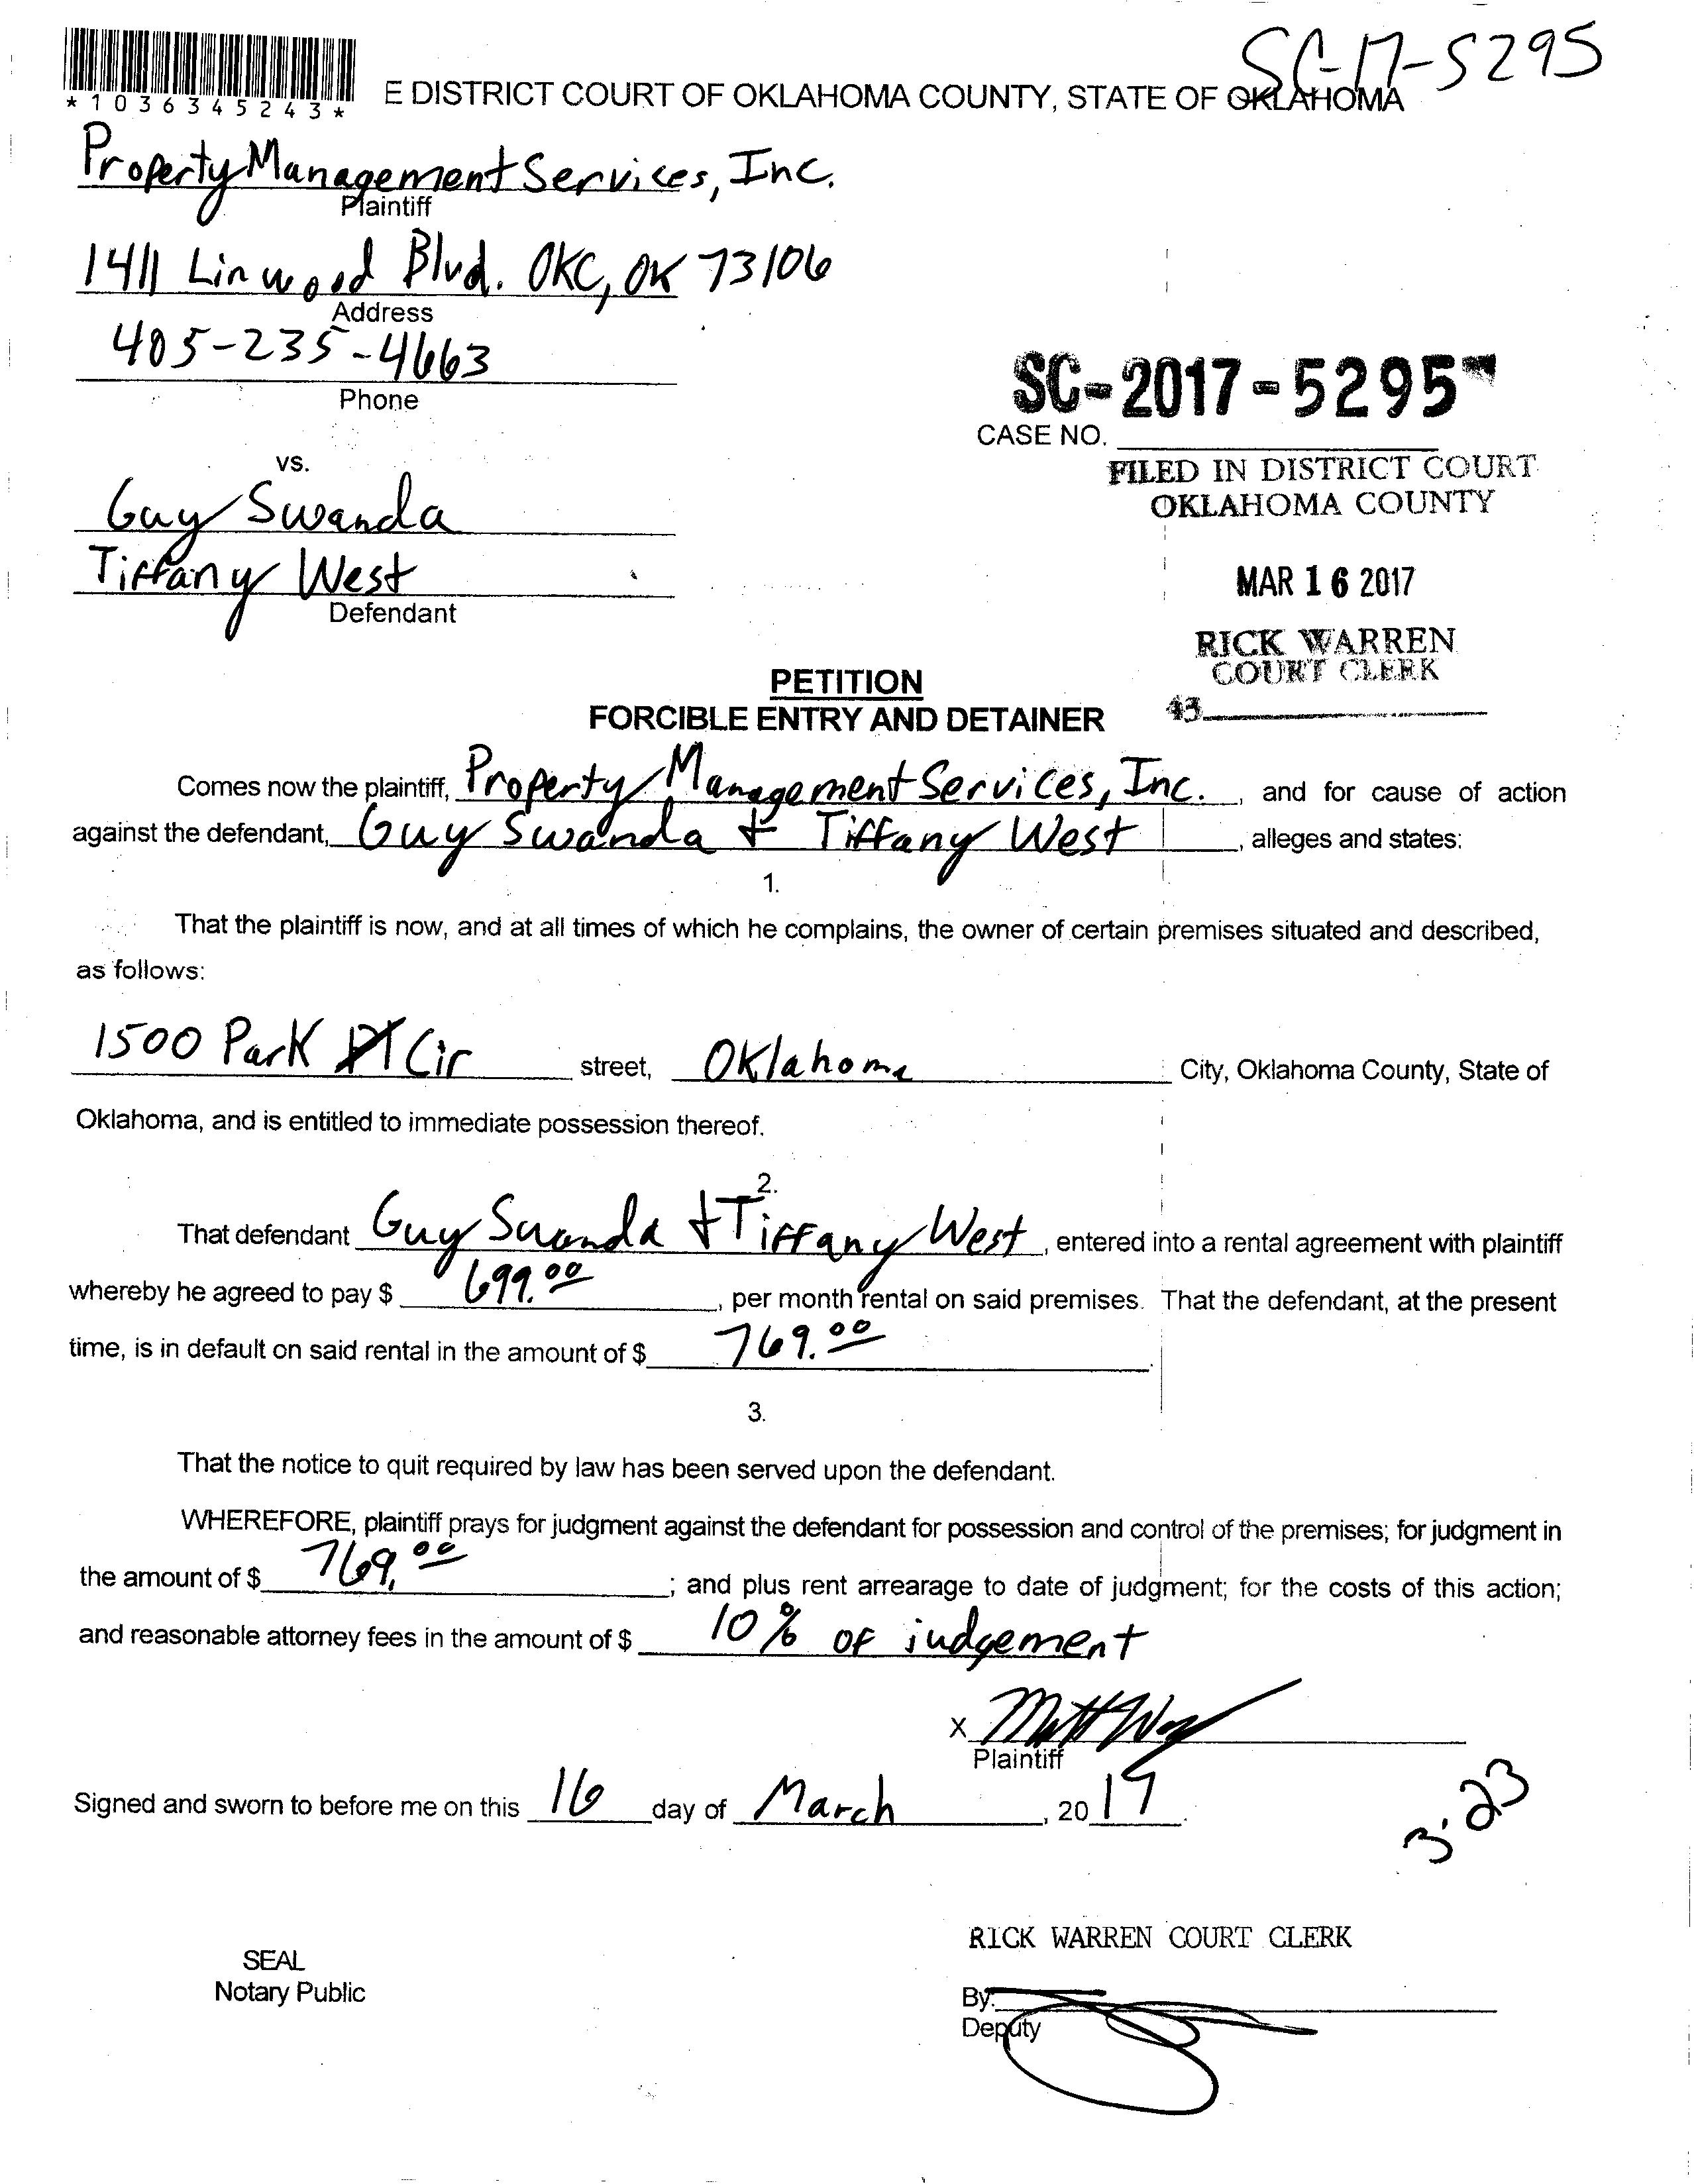 SC-17-5295
*1036345243*
E DISTRICT COURT OF OKLAHOMA COUNTY, STATE OF OKLAHOMA
Property Management Services, Inc.
Plaintiff
1411 Linwood Blvd. OKC, OK 73106
Address
405-235-4663
Phone
SC-2017-5295
CASE NO.
vs.
FILED IN DISTRICT COURT
OKLAHOMA COUNTY
Guy Swanda
Tiffany West
Defendant
MAR 16 2017
RICK WARREN
COURT CLERK
43
PETITION
FORCIBLE ENTRY AND DETAINER
Comes now the plaintiff, Property Management Services, Inc., and for cause of action
against the defendant, Guy Swanda + Tiffany West, alleges and states:
1.
That the plaintiff is now, and at all times of which he complains, the owner of certain premises situated and described,
as follows:
1500 Park Cir street, Oklahoma City, Oklahoma County, State of
Oklahoma, and is entitled to immediate possession thereof.
2.
That defendant Guy Swanda + Tiffany West, entered into a rental agreement with plaintiff
whereby he agreed to pay $ 699.00, per month rental on said premises. That the defendant, at the present
time, is in default on said rental in the amount of $ 769.00.
3.
That the notice to quit required by law has been served upon the defendant.
WHEREFORE, plaintiff prays for judgment against the defendant for possession and control of the premises; for judgment in
the amount of $ 769.00; and plus rent arrearage to date of judgment; for the costs of this action;
and reasonable attorney fees in the amount of $ 10% of judgement
X
Plaintiff
Signed and sworn to before me on this 16 day of March, 2017.
3.23
RICK WARREN COURT CLERK
SEAL
Notary Public
By:
Deputy